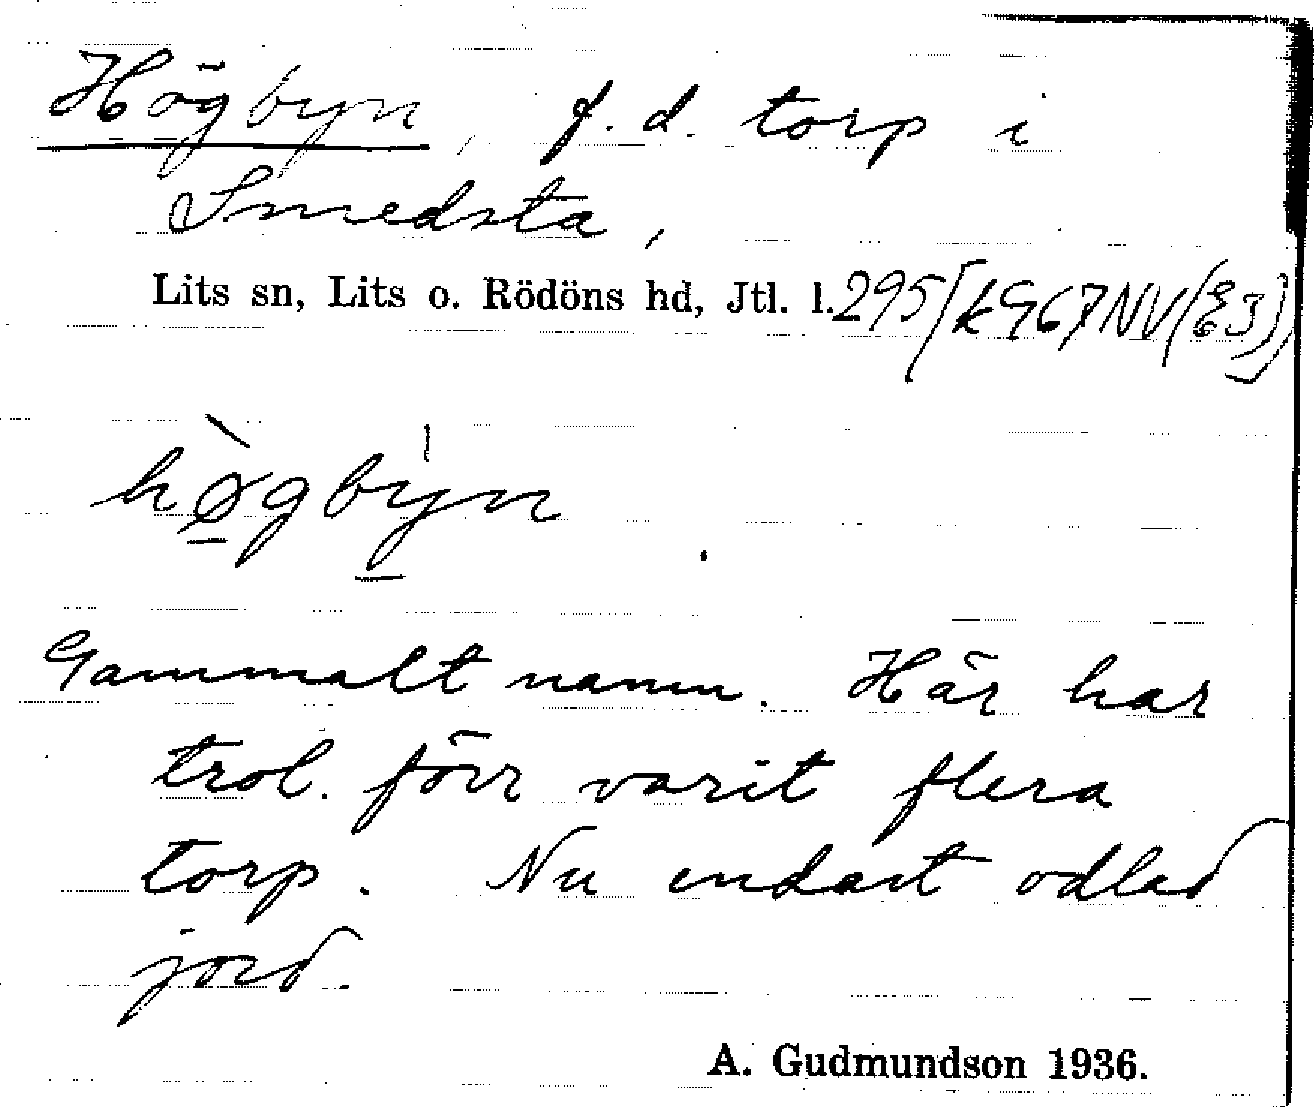 Högbyn, f.d. torp i
Smedsta,
Lits sn, Lits o. Rödöns hd, Jtl. l. 295
hø̀gby̍n
Gammalt namn. Här har
trol. förr varit flera
torp. Nu endast odlad
jord.
A. Gudmundson 1936.